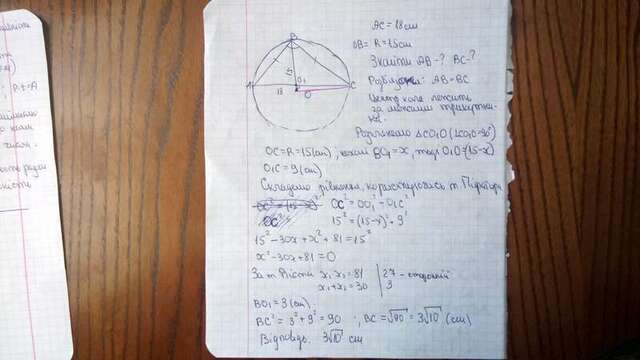 AC = 18 см
OB = R = 15 см
Знайти AB - ? BC - ?
AB = BC
Центр кола лежить
за межами трикутни-
ка.
Розглянемо △CO₁O (∠CO₁O = 90°)
OC = R = 15 (см), нехай BO₁ = x, тоді O₁O = (15 - x)
O₁C = 9 (см)
Складемо рівняння, користуючись т. Піфагора
OC² = OO₁² + O₁C²
15² = (15 - x)² + 9²
15² - 30x + x² + 81 = 15²
x² - 30x + 81 = 0
За т. Вієта x₁ x₂ = 81 | 27 - сторонній
x₁ + x₂ = 30 | 3
BO₁ = 3 (см)
BC² = 3² + 9² = 90 ; BC = √90 = 3√10 (см)
Відповідь: 3√10 см
B
A
C
O₁
O